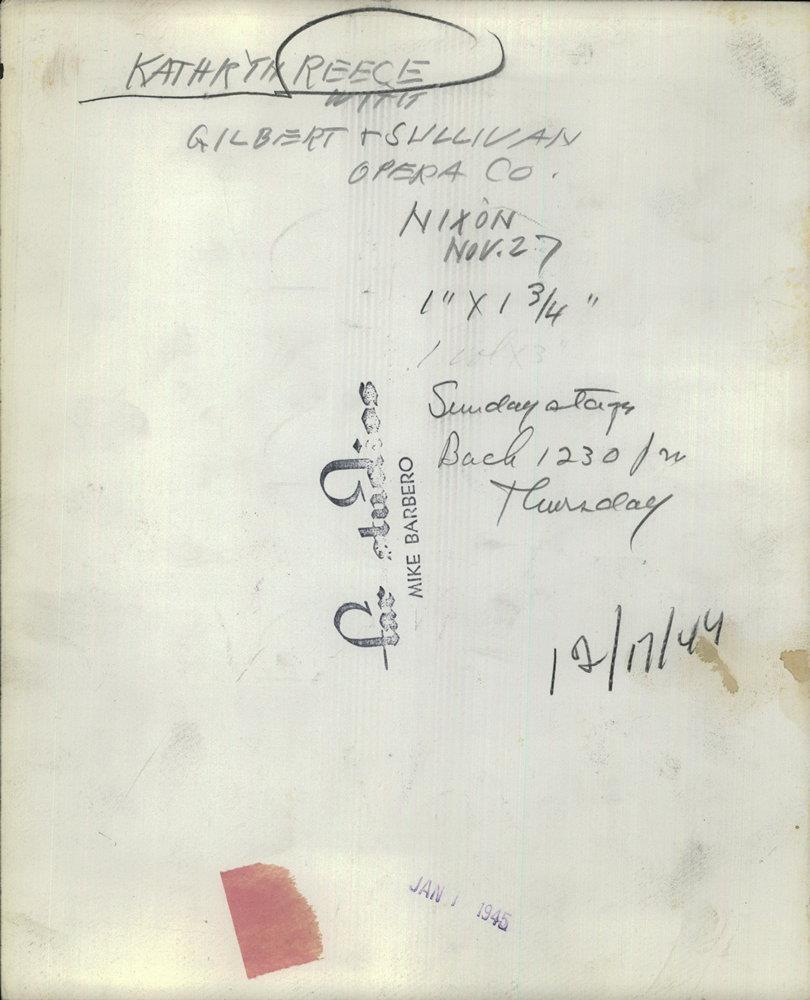 KATHRYN REECE
WITH
GILBERT + SULLIVAN
OPERA CO.
NIXON
NOV. 27
1" X 1 3/4"
Sunday stage
Back 1230 pm
Thursday
studios
MIKE BARBERO
12/17/44
JAN 1 1945